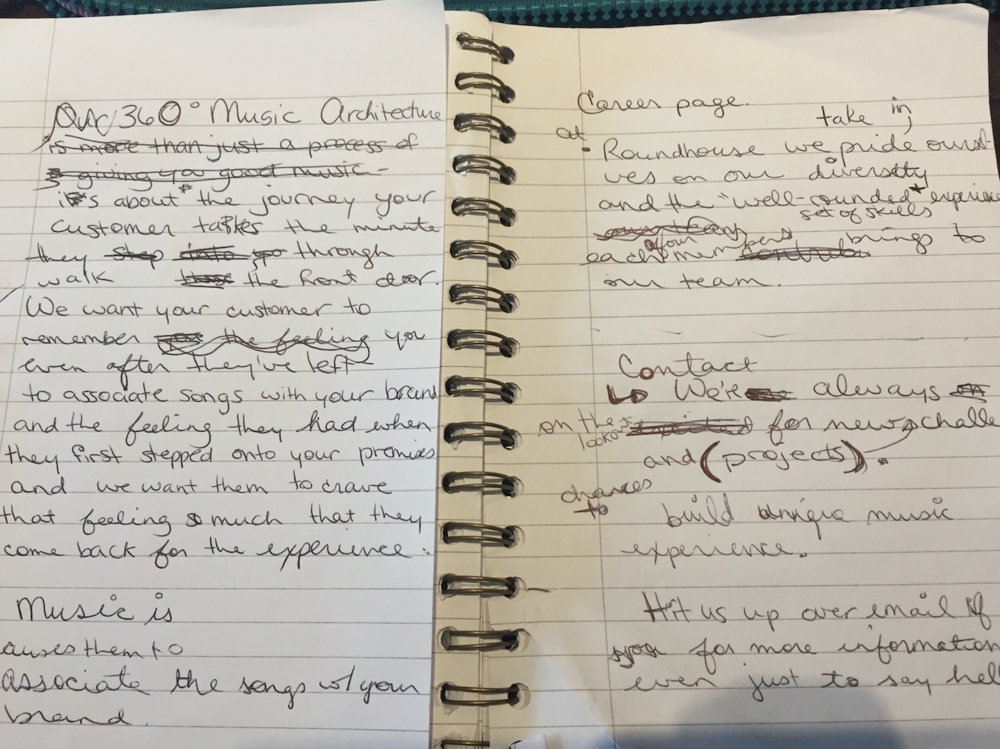 Our 360° Music Architecture
is more than just a process of
giving you good music -
it's about the journey your
customer takes the minute
they step into go through
walk the front door.
We want your customer to
remember the feeling you
even after they've left
to associate songs with your brand
and the feeling they had when
they first stepped onto your premises
and we want them to crave
that feeling so much that they
come back for the experience.
Music is
auses them to
associate the songs w/ your
brand.
Career page.
take in
at
- Roundhouse we pride ourse
ves on our diversity
and the "well-rounded" experience
set of skills
each of our members brings to
our team.
Contact
↳ We're always
on the
look for new challe
and (projects).
chances
to build unique music
experience.
Hit us up over email if
you for more information
even just to say hel